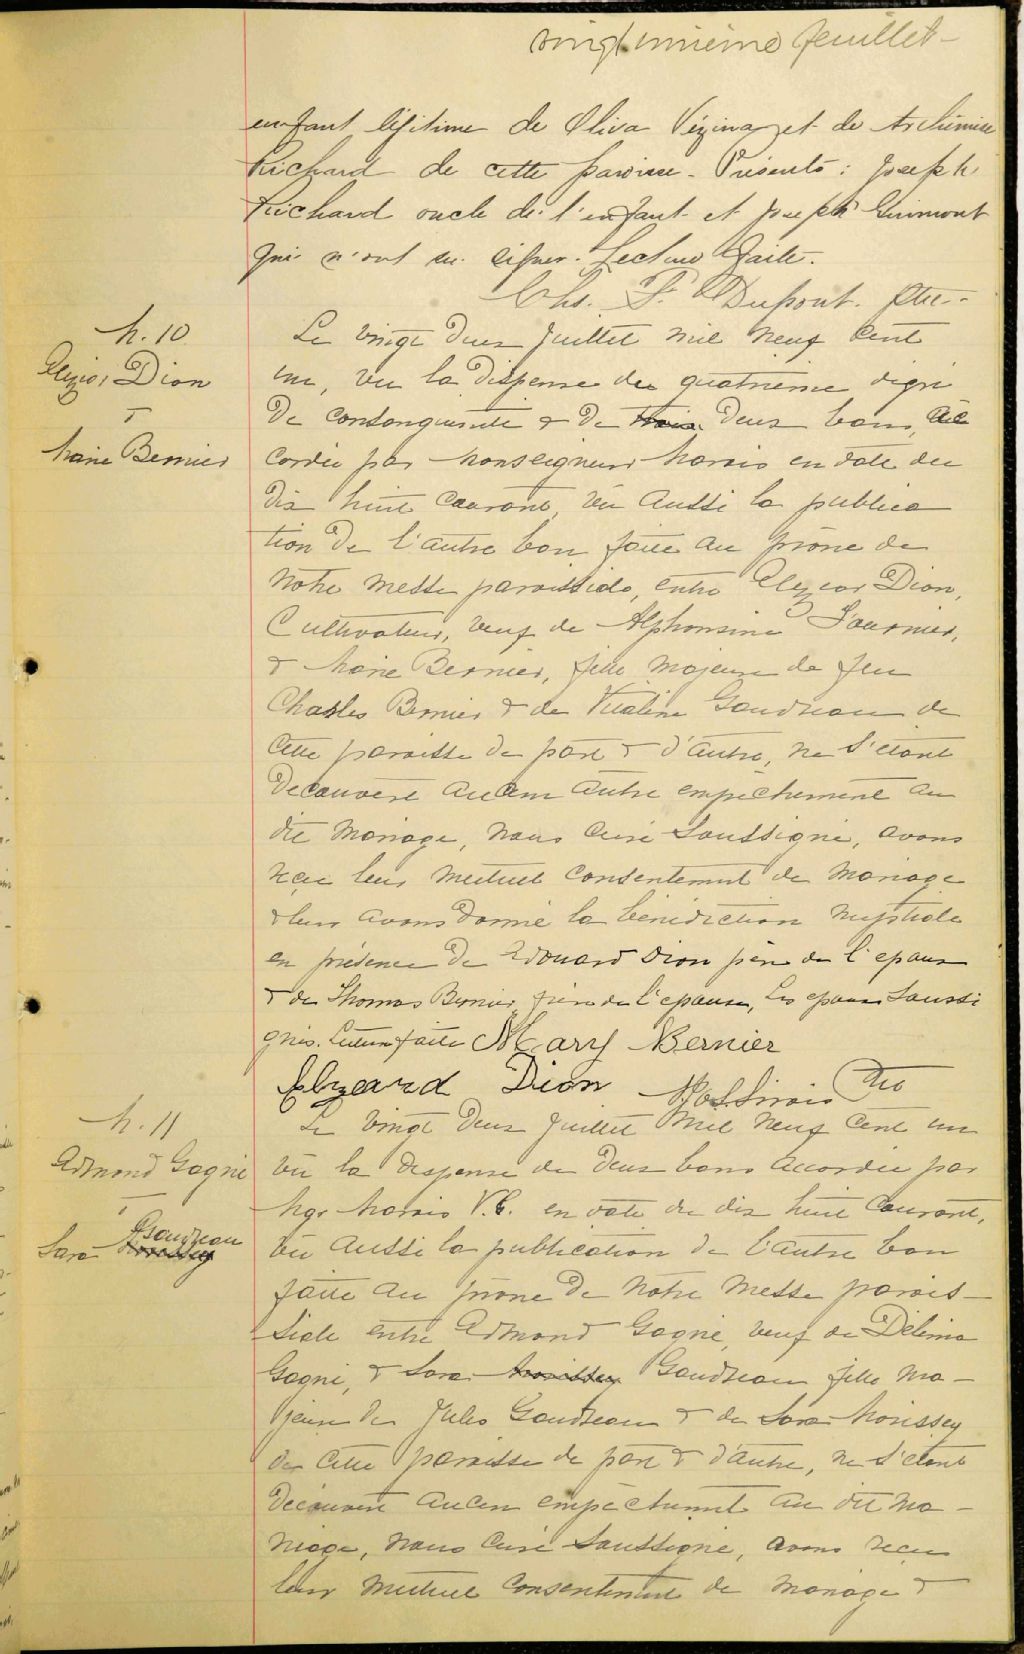 vingt unième feuillet -
enfant légitime de Oliva Vézina et de Archimède
Richard de cette paroisse - Présents : Joseph
Richard oncle de l'enfant et Joseph Guimont
qui n'ont su signer. Lecture faite.
Chs. F. Dupont. Ptre-
M. 10
Elzéar Dion
&
Marie Bernier
Le vingt deux juillet mil neuf cent
un, vu la dispense du quatrième degré
de consanguinité & de trois deux bans, ac
cordée par Monseigneur Marois en date du
dix huit courant, vu aussi la publica
tion de l'autre ban faite au prône de
notre messe paroissiale, entre Elzear Dion,
Cultivateur, veuf de Alphonsine Fournier,
& Marie Bernier, fille majeure de feu
Charles Bernier & de Vitaline Gaudreau de
cette paroisse de part & d'autre, ne s'étant
découvert aucun autre empêchement au
dit mariage, nous curé soussigné, avons
reçu leur mutuel consentement de mariage
& leur avons donné la bénédiction nuptiale
en présence de Edouard Dion père de l'epoux
& de Thomas Bernier, frère de l'epouse, les epoux soussi
gnés. Lecture faite Mary Bernier
Elzeard Dion Ptre
M. 11
Edmond Gagné
&
Sara Morissey Gaudreau
Le vingt deux juillet mil neuf cent un
vu la dispense de deux bans accordée par
Mgr Marois V.G. en date du dix huit courant,
vu aussi la publication de l'autre ban
faite au prône de notre messe parois-
siale entre Edmond Gagné, veuf de Délima
Gagné, & Sara Morissey Gaudreau fille ma-
jeure de Jules Gaudreau & de Sara Morissey
de cette paroisse de part & d'autre, ne s'étant
découvert aucun empêchement au dit ma-
riage, nous curé soussigné, avons reçu
leur mutuel consentement de mariage &